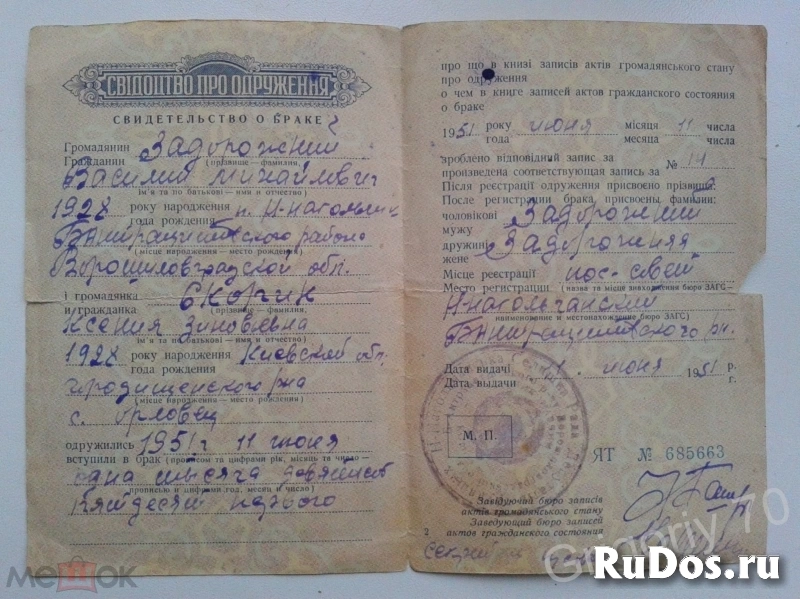 СВІДОЦТВО ПРО ОДРУЖЕННЯ
СВИДЕТЕЛЬСТВО О БРАКЕ
Громадянин Задорожний
Гражданин (прізвище – фамилия,
Василий Михайлович
ім'я та по батькові – имя и отчество)
1928 року народження п. Н-Нагольчик
года рождения
района
(місце народження – место рождения)
Ворошиловградской обл.
і громадянка Скорчик
и гражданка (прізвище – фамилия,
Ксения Зиновьевна
ім'я та по батькові – имя и отчество)
1928 року народження Киевской обл.
года рождения
городищенского р-на
(місце народження – место рождения)
с. Орловец
одружились 1951 г 11 июня
вступили в брак (прописом та цифрами рік, місяць та число –
одна тысяча девятьсот
прописью и цифрами год, месяц и число)
пятдесят первого
про що в книзі записів актів громадянського стану
про одруження
о чем в книге записей актов гражданского состояния
о браке
1951 року июня місяця 11 числа
года месяца числа
зроблено відповідний запис за № 14
произведена соответствующая запись за
Після реєстрації одруження присвоєно прізвища:
После регистрации брака, присвоены фамилии:
чоловікові Задорожний
мужу
дружині Задорожняя
жене
Місце реєстрації пос-совет
Место регистрации (назва та місце знаходження бюро ЗАГС –
Н-Нагольчанский
наименование и местонахождение бюро ЗАГС)
р-н.
Дата видачі 11. июня 1951 р.
Дата выдачи г.
М. П.
ЯТ № 685663
Завідуючий бюро записів
актів громадянського стану
Заведующий бюро записей
актов гражданского состояния
2
Grigoriy 70
мешок
RuDos.ru